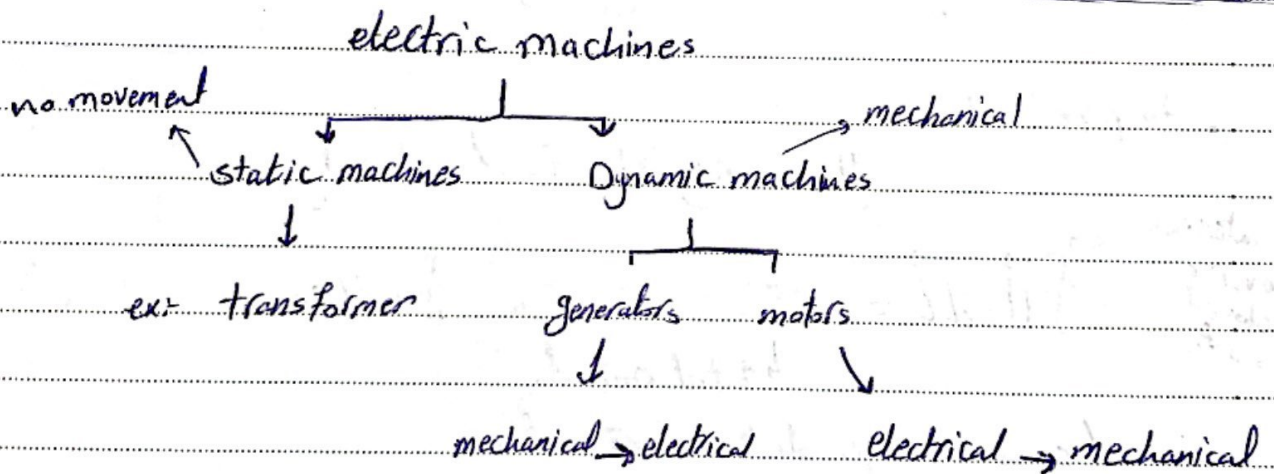 electric machines
no movement
mechanical
static machines Dynamic machines
ex:- transformer generators motors
mechanical → electrical electrical → mechanical